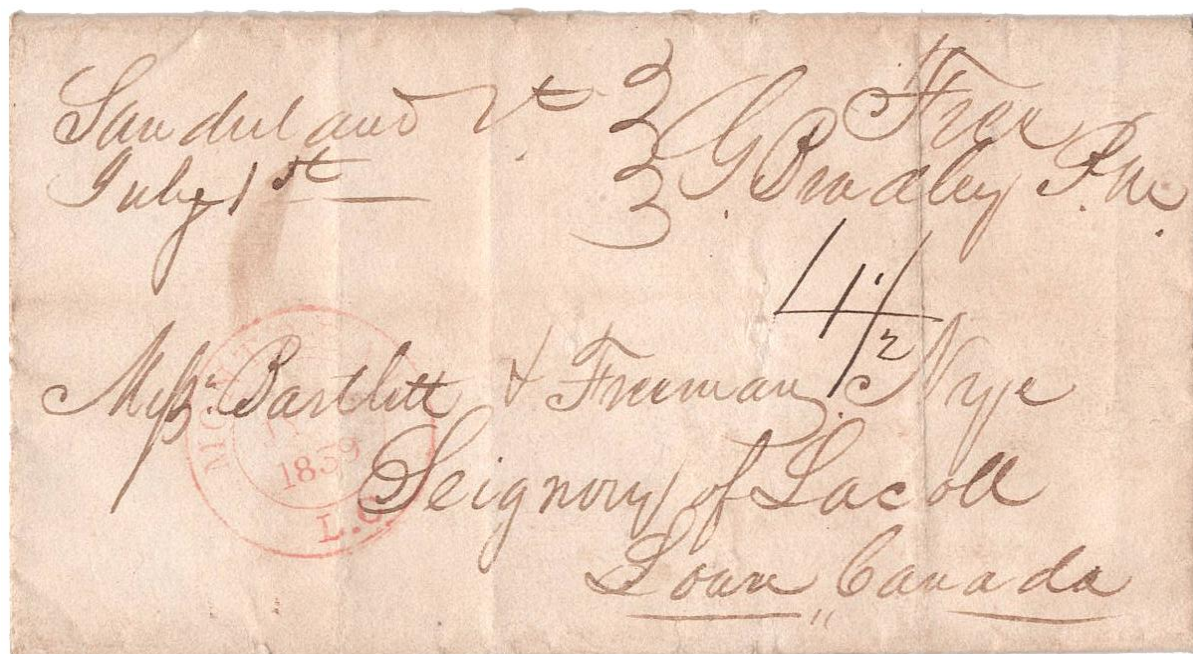 Sunderland Vt
July 1st
Free
G. Bradley P.M.
4 1/2
Messr. Bartlett & Freeman Nye
Seignory of Lacoll
Lowr Canada
MONT
JY
1839
L.C.